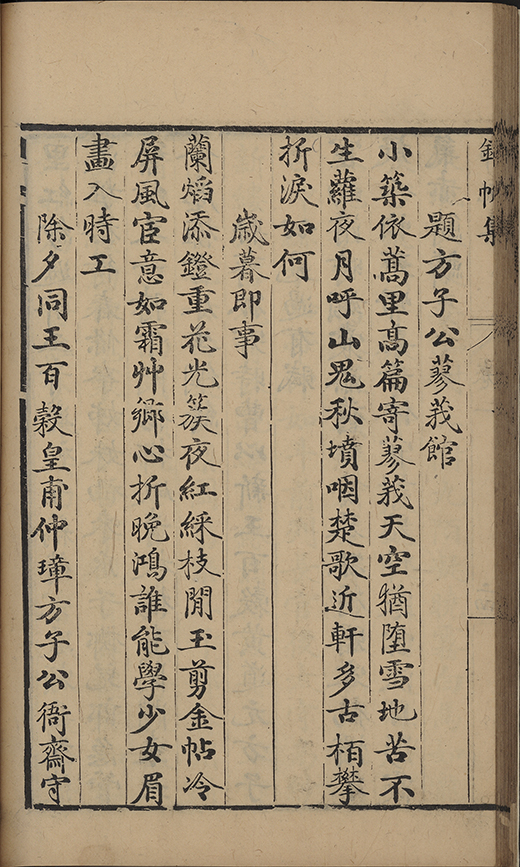 錦帆集
題方子公蓼莪館
小築依蒿里高篇寄蓼莪天空猶堕雪地苦不
生蘿夜月呼山鬼秋墳咽楚歌近軒多古栢攀
折淚如何
歳暮即事
蘭熖添鐙重花光簇夜紅綵枝閒玉剪金帖冷
屏風宦意如霜艸鄉心折晚鴻誰能學少女眉
畫入時工
除夕同王百穀皇甫仲璋方子公衙齋守